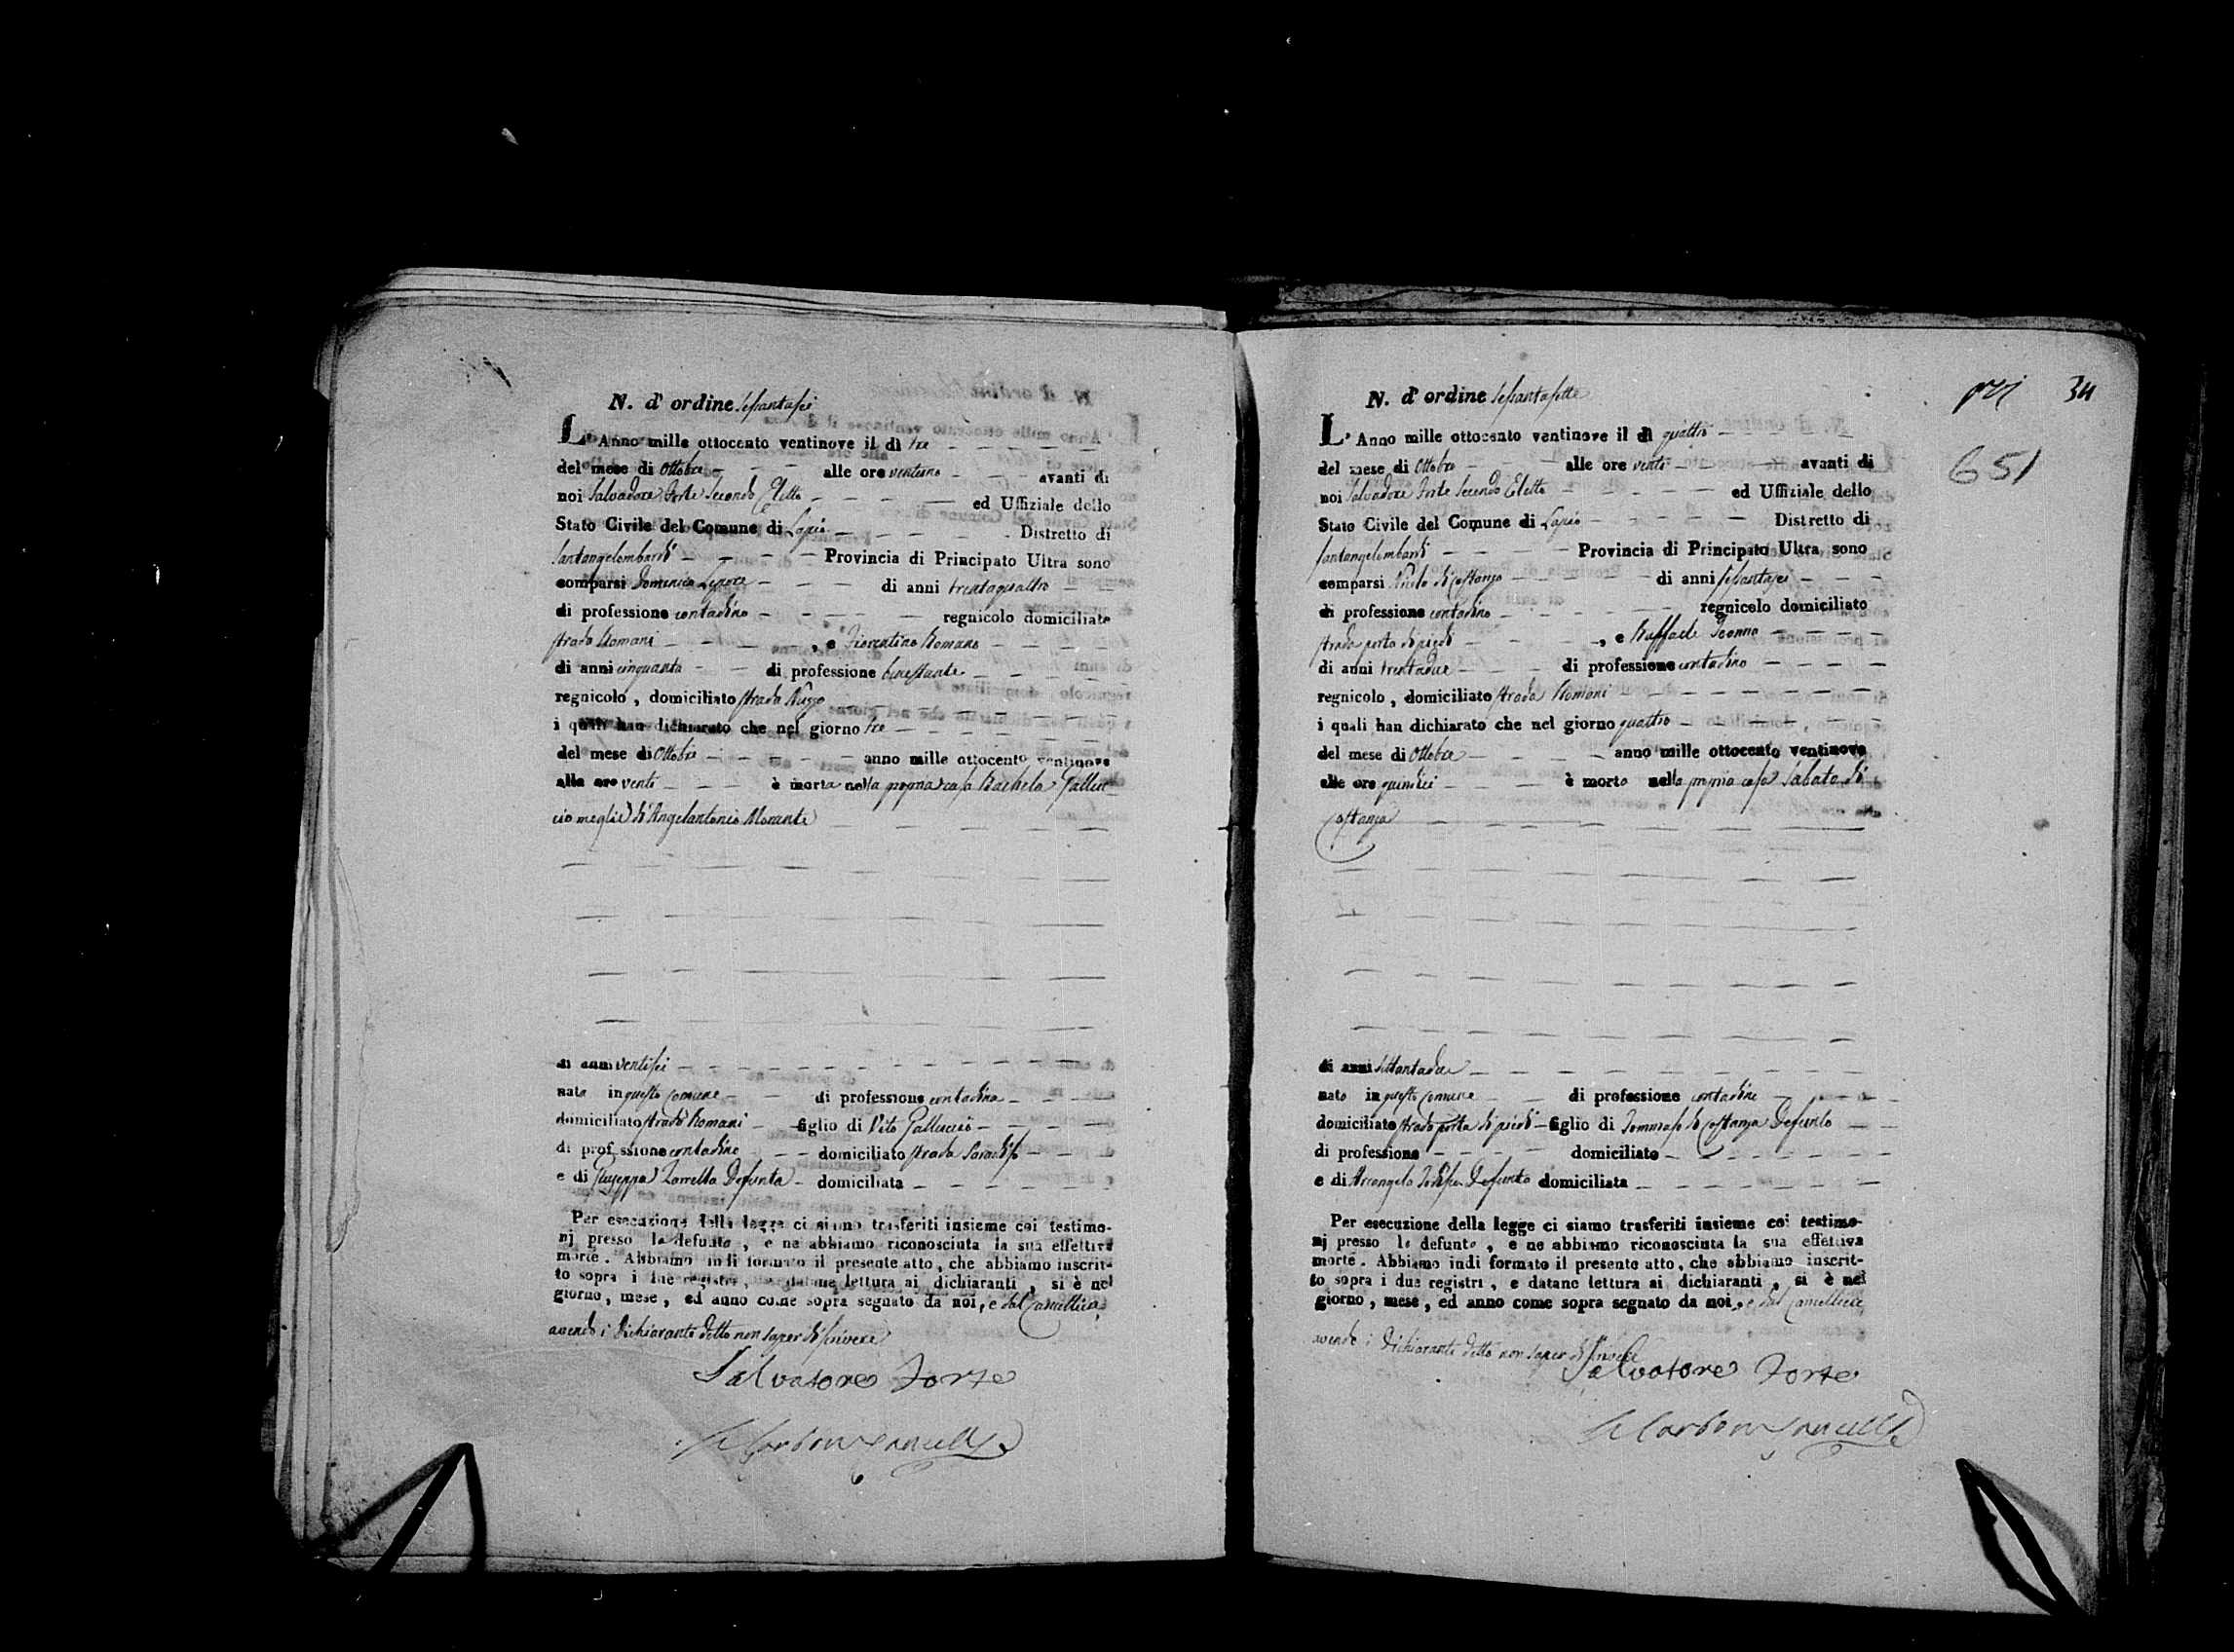 N. d' ordine sessantasei
L' Anno mille ottocento ventinove il di tre
del mese di Ottobre alle ore ventuno avanti di
noi Salvadore Forte Secondo Eletto ed Uffiziale dello
Stato Civile del Comune di Lapio Distretto di
Santangelombardi Provincia di Principato Ultra sono
comparsi Domenico Lepore di anni trentaquattro
di professione contadino regnicolo domiciliato
strada Romani , e Fiorentino Romano
di anni cinquanta di professione benestante
regnicolo , domiciliato strada
i quali han dichiarato che nel giorno tre
del mese di Ottobre anno mille ottocento ventinove
alle ore venti è morta nella propria casa Rachela Galluc
cio moglie di Angelantonio Morante
di anni ventisei
nata in questo comune di professione contadina
domiciliato strada Romani figlio di Vito Galluccio
di professione contadino domiciliato strada
e di Giuseppa Zarrella Defunta domiciliata
Per esecuzione della legge ci siamo trasferiti insieme coi testimo-
nj presso la defunta , e ne abbiamo riconosciuta la sua effettiva
morte . Abbiamo indi formato il presente atto , che abbiamo inscrit-
to sopra i due registri , e datane lettura ai dichiaranti , si è nel
giorno , mese , ed anno come sopra segnato da noi , e dal Cancelliere
avendo i Dichiaranti detto non saper di scrivere
Salvatore Forte
N. d' ordine sessantasette
L' Anno mille ottocento ventinove il di quattro
del mese di Ottobre alle ore venti avanti di
noi Salvadore Forte Secondo Eletto ed Uffiziale dello
Stato Civile del Comune di Lapio Distretto di
Santangelombardi Provincia di Principato Ultra sono
comparsi di Costanzo di anni sessantasei
di professione contadino regnicolo domiciliato
strada porta di piedi , e Raffaele Ioanna
di anni trentadue di professione contadino
regnicolo , domiciliato strada Romani
i quali han dichiarato che nel giorno quattro
del mese di Ottobre anno mille ottocento ventinove
alle ore quindici è morto nella propria casa Sabato di
Costanzo
di anni settantadue
nato in questo comune di professione contadino
domiciliato strada porta di piedi figlio di Tommaso di Costanzo Defunto
di professione domiciliato
e di Arcangela Defunta domiciliata
Per esecuzione della legge ci siamo trasferiti insieme coi testimo-
nj presso lo defunto , e ne abbiamo riconosciuta la sua effettiva
morte . Abbiamo indi formato il presente atto , che abbiamo inscrit-
to sopra i due registri , e datane lettura ai dichiaranti , si è nel
giorno , mese , ed anno come sopra segnato da noi , e dal Cancelliere
avendo i Dichiaranti detto non saper di scrivere
Salvatore Forte
34
651